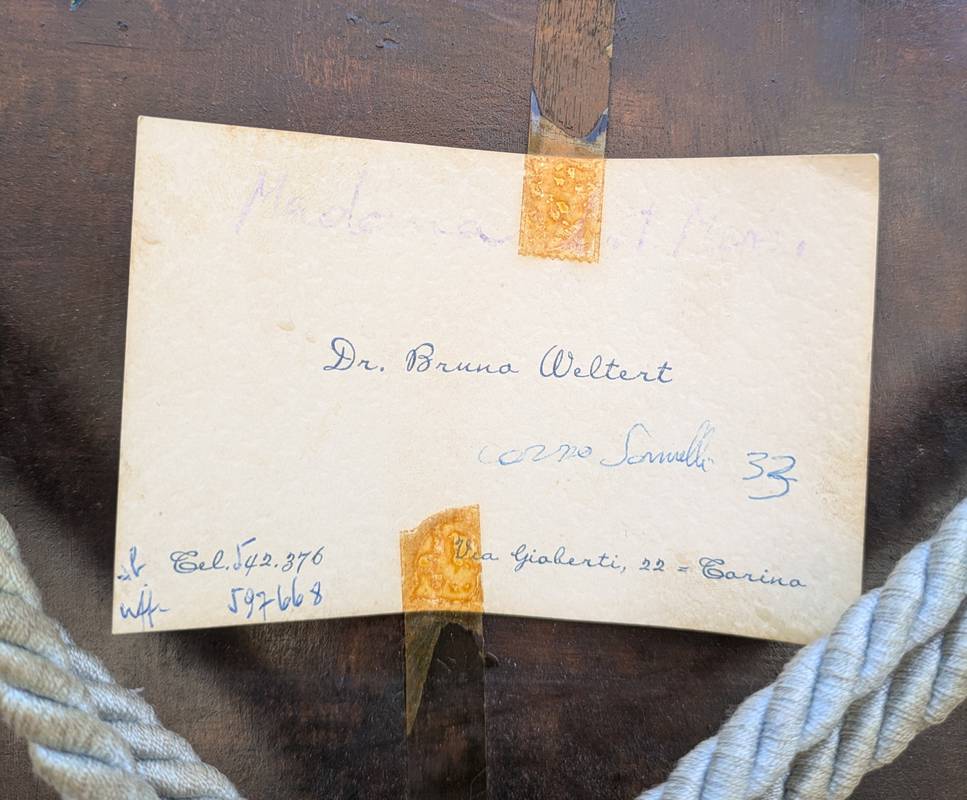 Madonna
Dr. Bruno Weltert
corso Sommeiller 33
ab Tel. 542.376
Via Gioberti, 22 = Torino
uff. 597668